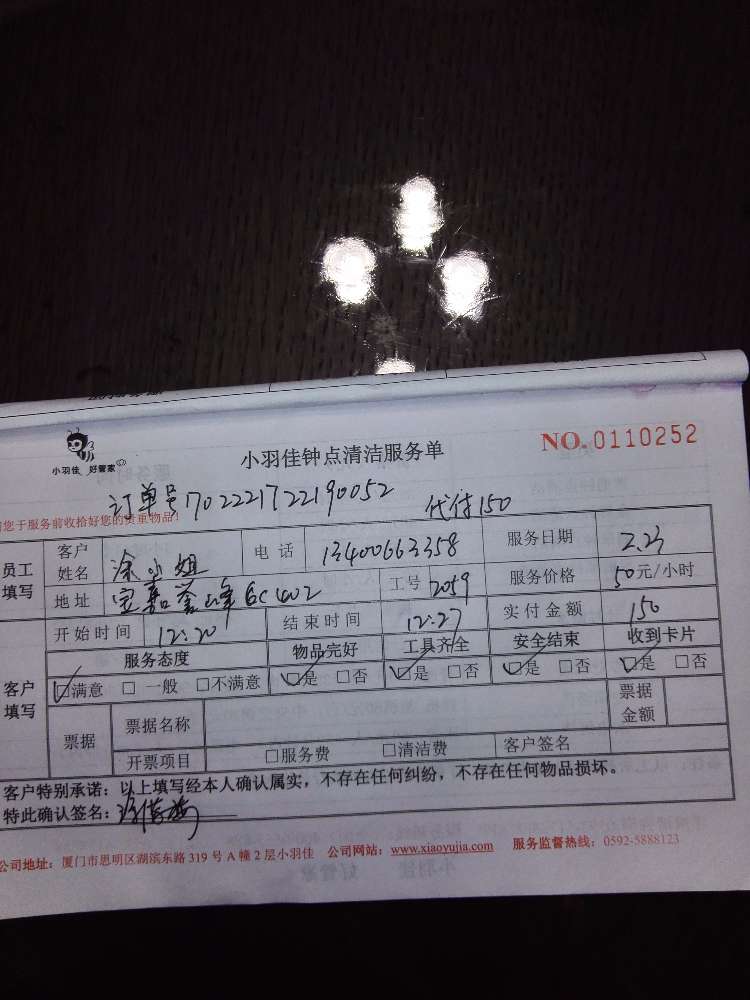 小羽佳 好管家
小羽佳钟点清洁服务单
NO. 0110252
订单号 702221722190052 代付150
您于服务前收拾好您的贵重物品!
员工填写 客户姓名 涂小姐 电话 13400663358 服务日期 2.23
地址 宝嘉誉峰6C402 工号 2059 服务价格 50元/小时
客户填写 开始时间 12:20 结束时间 12:27 实付金额 150
服务态度 物品完好 工具齐全 安全结束 收到卡片
☑满意 □一般 □不满意 ☑是 □否 ☑是 □否 ☑是 □否 ☑是 □否
票据 票据名称 票据金额
开票项目 □服务费 □清洁费 客户签名
客户特别承诺:以上填写经本人确认属实,不存在任何纠纷,不存在任何物品损坏。
特此确认签名:
公司地址:厦门市思明区湖滨东路319号A幢2层小羽佳 公司网站:www.xiaoyujia.com 服务监督热线:0592-5888123